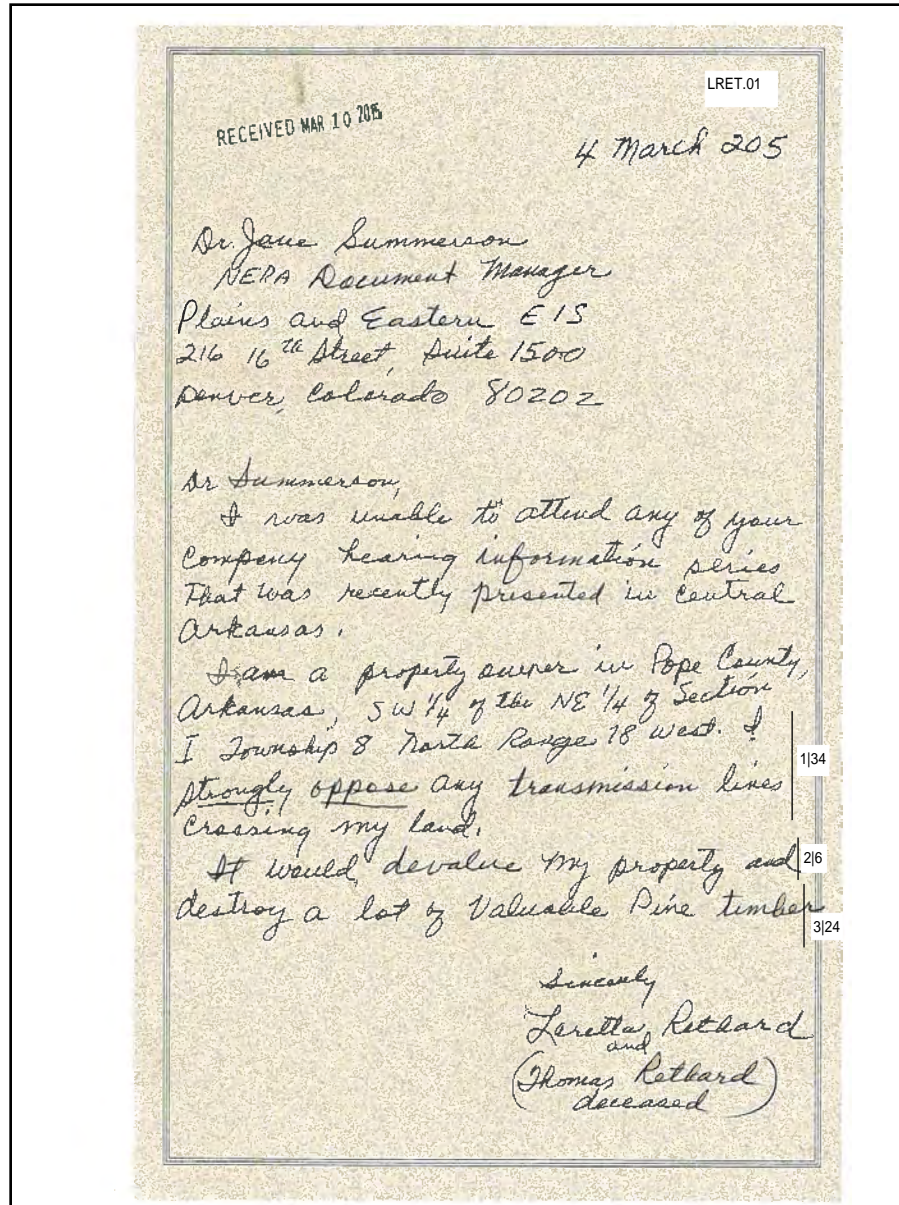 LRET.01
RECEIVED MAR 10 2015
4 March 205
Dr. Jane Summerson
NEPA Document Manager
Plains and Eastern EIS
216 16th Street, Suite 1500
Denver, Colorado 80202
Dr Summerson,
I was unable to attend any of your
Company hearing information series
that was recently presented in Central
Arkansas.
I am a property owner in Pope County,
Arkansas, SW 1/4 of the NE 1/4 of Section
I Township 8 North Range 18 West. I
strongly oppose any transmission lines
1|34
crossing my land.
It would devalue my property and
2|6
destroy a lot of Valuable Pine timber
3|24
Sincerely
Loretta Rethard
and
(Thomas Rethard)
deceased